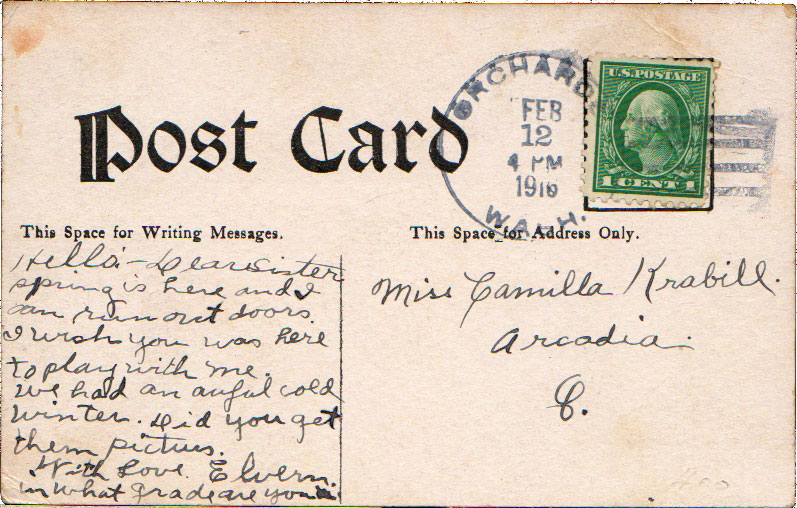 Post Card
ORCHARDS
FEB
12
4 PM
1916
WASH.
U.S. POSTAGE
1 CENT 1
This Space for Writing Messages.
Hello - Dear Sister
spring is here and I
can run out doors.
I wish you was here
to play with me.
we had an awful cold
winter. Did you get
them pictures.
With Love. Elvern.
in what grade are you in
This Space for Address Only.
Miss Camilla Krabill.
Arcadia.
O.